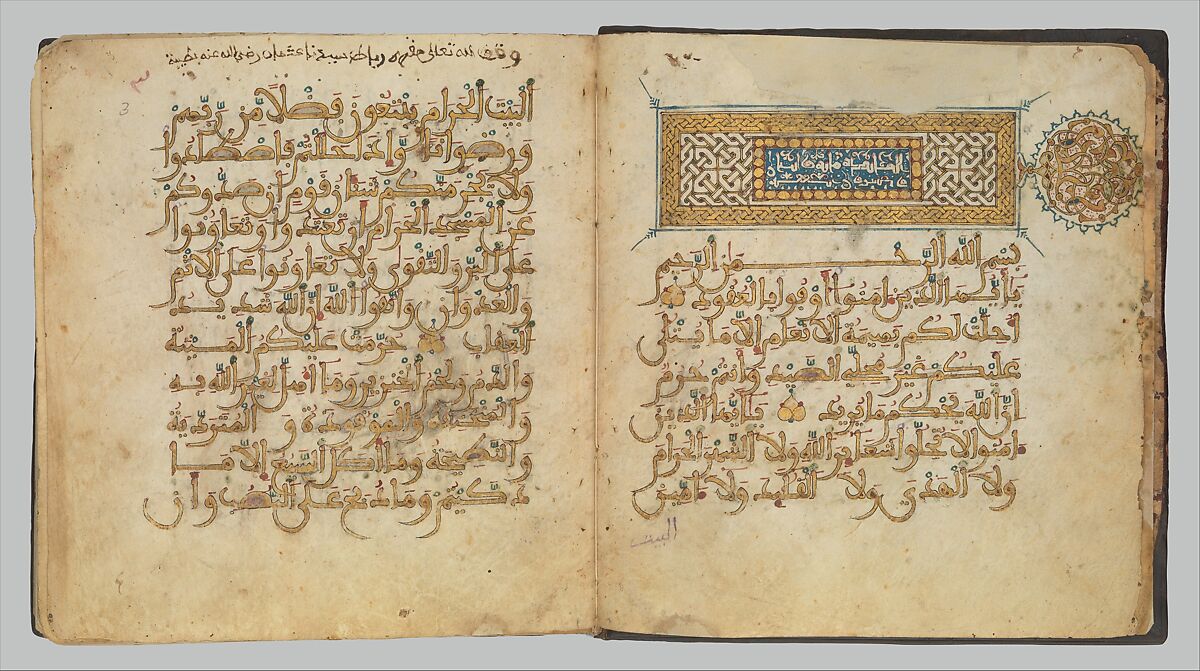 بسم الله الرحمن الرحيم
يأيها الذين ءامنوا أوفوا بالعقود
أحلت لكم بهيمة الانعام إلا ما يتلى
عليكم غير محلي الصيد وأنتم حرم
إن الله يحكم ما يريد يأيها الذين
ءامنوا لا تحلوا شعائر الله ولا الشهر الحرام
ولا الهدي ولا القلائد ولا ءامين
البيت
وقف لله تعالى مقره رباط سيدنا عثمان رضي الله عنه بطيبة
3
البيت الحرام يبتغون فضلا من ربهم
ورضوانا وإذا حللتم فاصطادوا
ولا يجرمنكم شنئان قوم ان صدوكم
عن المسجد الحرام أن تعتدوا وتعاونوا
على البر والتقوى ولا تعاونوا على الاثم
والعدوان واتقوا الله إن الله شديد
العقاب حرمت عليكم الميتة
والدم ولحم الخنزير وما أهل لغير الله به
والمنخنقة والموقوذة والمتردية
والنطيحة وما أكل السبع إلا ما
ذكيتم وما ذبح على النصب وأن